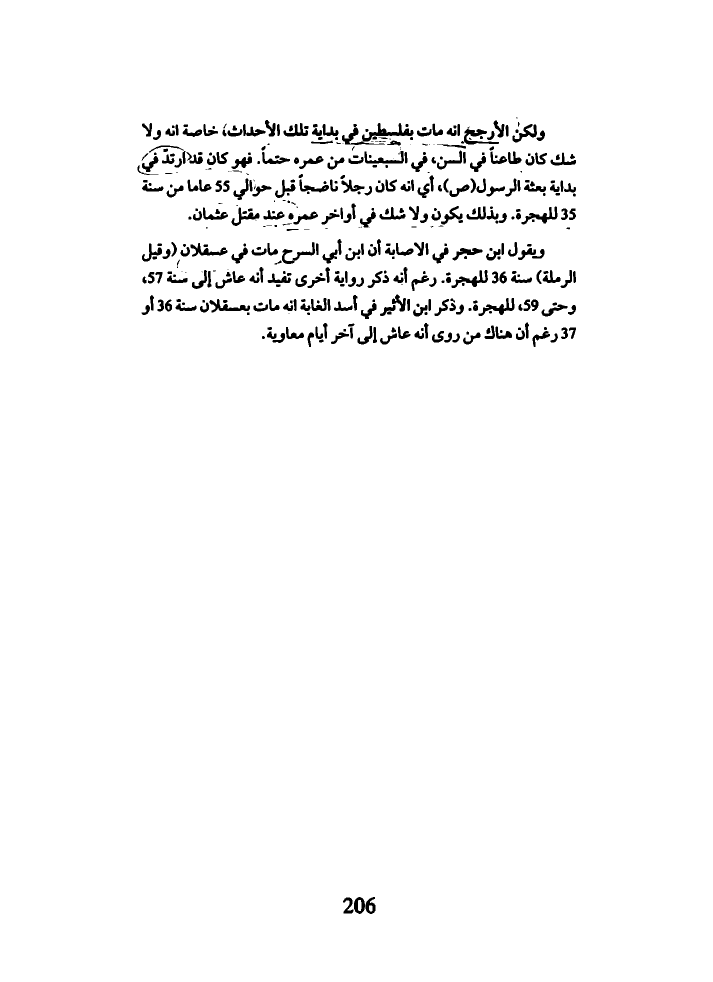 ولكن الأرجح انه مات بفلسطين في بداية تلك الأحداث، خاصة انه ولا
شك كان طاعناً في السن، في السبعينات من عمره حتماً. فهو كان قد ارتدّ في
بداية بعثة الرسول(ص)، أي انه كان رجلاً ناضجاً قبل حوالي 55 عاما من سنة
35 للهجرة. وبذلك يكون ولا شك في أواخر عمره عند مقتل عثمان.
ويقول ابن حجر في الاصابة أن ابن أبي السرح مات في عسقلان (وقيل
الرملة) سنة 36 للهجرة. رغم أنه ذكر رواية أخرى تفيد أنه عاش إلى سنة 57،
وحتى 59، للهجرة. وذكر ابن الأثير في أسد الغابة انه مات بعسقلان سنة 36 أو
37 رغم أن هناك من روى أنه عاش إلى آخر أيام معاوية.
206